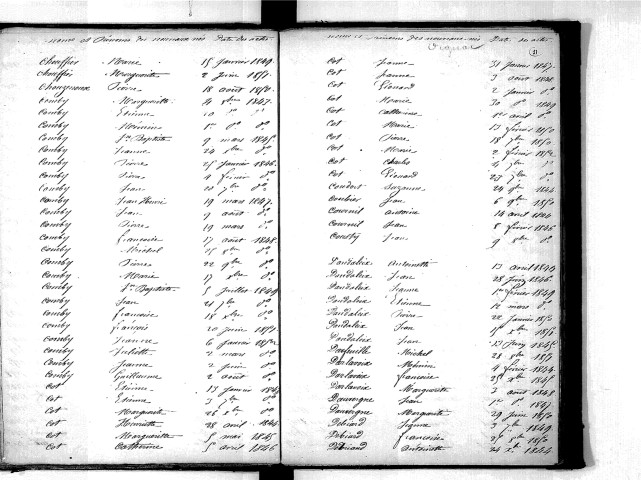 noms et Prénoms des nouveaux nés Date des actes
Chauffier Marie 15 janvier 1849
Chauffier Marguerite 2 juin 1850
Pierre 18 août 1850
Comby Marguerite 4 8bre 1847
Comby Etienne 10 d°
Comby 1er d° d°
Comby Jn Baptiste 9 mars 1845
Comby Jeanne 24 8bre d°
Comby Pierre 25 janvier 1846
Comby Pierre 4 février d°
Comby Jean 20 7bre d°
Comby Jean Henri 19 mars 1847
Comby Jean 9 août d°
Comby Pierre 19 mars d°
Comby françoise 17 août 1848
Comby Michel 25 8bre d°
Comby Pierre 22 9bre d°
Comby Marie 17 9bre d°
Comby Jn Baptiste 5 juillet 1849
Comby Jean 21 7bre d°
Comby françoise 18 xbre d°
Comby françois 20 juin 1851
Comby Jeanne 6 janvier 1852
Comby Juliette 2 mars d°
Comby Jeanne 2 juin d°
Comby Guillaume 2 août d°
Cot Etienne 13 janvier 1845
Cot Etienne 3 7bre d°
Cot Marguerite 26 xbre d°
Cot Henriette 28 avril 1844
Cot Marguerite 5 mai 1845
Cot Catherine 5 avril 1846
noms et prénoms des nouveaux nés Date des actes
31
Cot Jeanne 31 janvier 1847
Cot Jeanne 3 août 1848
Cot Léonard 2 janvier d°
Cot Marie 30 d° 1849
Cot Catherine 1er avril d°
Cot Marie 13 février 1850
Cot Pierre 18 8bre 1850
Cot Marie 2 février 1852
Cot Charles 4 7bre d°
Cot Léonard 27 7bre d°
Suzanne 24 9bre 1844
Coubier Jean 6 9bre 1850
Courreil Antoine 14 avril 1844
Courreil Jean 8 février 1846
Jean 9 8bre d°
Dandaleix Antoinette 13 avril 1844
Dandaleix Jean 28 1846
Dandaleix Jeanne 1er février 1849
Dandaleix Etienne 12 mars d°
Dandaleix Pierre 22 janvier 1850
Dandaleix Jean
Dandaleix Jean 13 1845
Michel 28 8bre
Darlavoix 4 février 1844
Darlavoix françoise 25 xbre 1845
Darlavoix Marguerite 3 août 1848
Dauvergne Jean 1er xbre 1847
Dauvergne Marguerite 29 juin 1850
Debiard 3 7bre 1849
Debiard françoise
Debiard Antoinette 24 xbre 1844